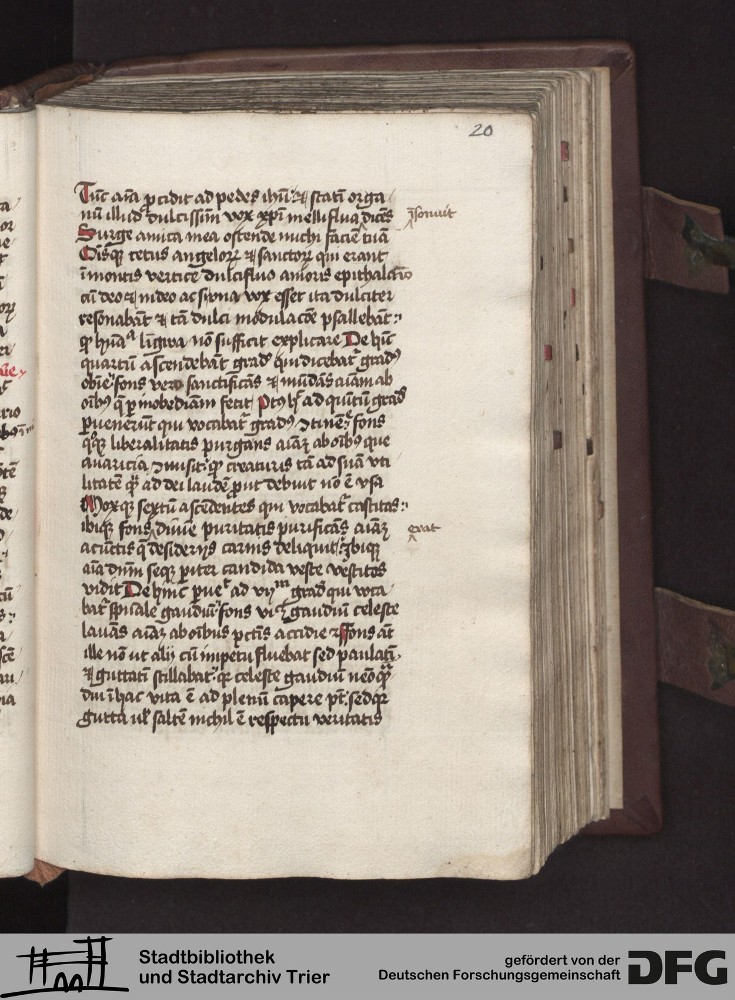 20
Tūc aīa ꝓcidit ad pedes ihū ⁊ statī orga
nū illud dulcissim vox xp̄i melliflua dicēs
resonuit
Surge amica mea ostende michi faciē tuā
Oīsqꝫ cetus angelorꝝ ⁊ sanctorꝝ qui erant
ī montis vertice dulcifluo amoris epithalamio
cū deo ⁊ in deo ac si vna vox esset ita dulciter
resonabāt ⁊ tā dulci modulacōe psallebāt
qꝫ hūana līgwa nō sufficit explicare De hīc
quartū ascendebāt gradū qui dicebat᷑ gradꝰ
obīe fons vero sanctificās ⁊ mūdās aīam ab
oībꝫ q̄ ꝑ inobediām fecit ad quītū gradū
ꝑuenerunt qui vocabat᷑ gradꝰ fons
qꝫ liberalitatis purgans aīaꝫ ab oībꝫ que
auaricia cōmisit qꝫ creaturis tā ad suā vti
litatē qꝫ ad dei laudē ꝓut debuit nō ē vsa
Mox qꝫ sextū ascēdentes qui vocabat᷑ castitas
ibiqꝫ fons diuīe puritatis purificās aīaꝫ
erat
a cūctis q̄ desiderijs carnis deliquit ibiqꝫ
aīa dn̄m seqꝫ ꝑiter candida veste vestitos
vidit De hinc ꝑuēt ad vijᵐ gradū qui voca
bat᷑ sp̄uale gaudiū fons gaudiū celeste
lauās aīaꝫ ab oībus pctīs accidie fons āt
ille nō ut alij cū impetu fluebat sed paulatī
⁊ guttatī stillabat qꝫ celeste gaudiū nēo qꝫ
diu ī hac vita ē ad plenū capere pt sed qꝫ
gutta ul saltē nichil ē respectu veritatis
Stadtbibliothek
und Stadtarchiv Trier
gefördert von der
Deutschen Forschungsgemeinschaft
DFG